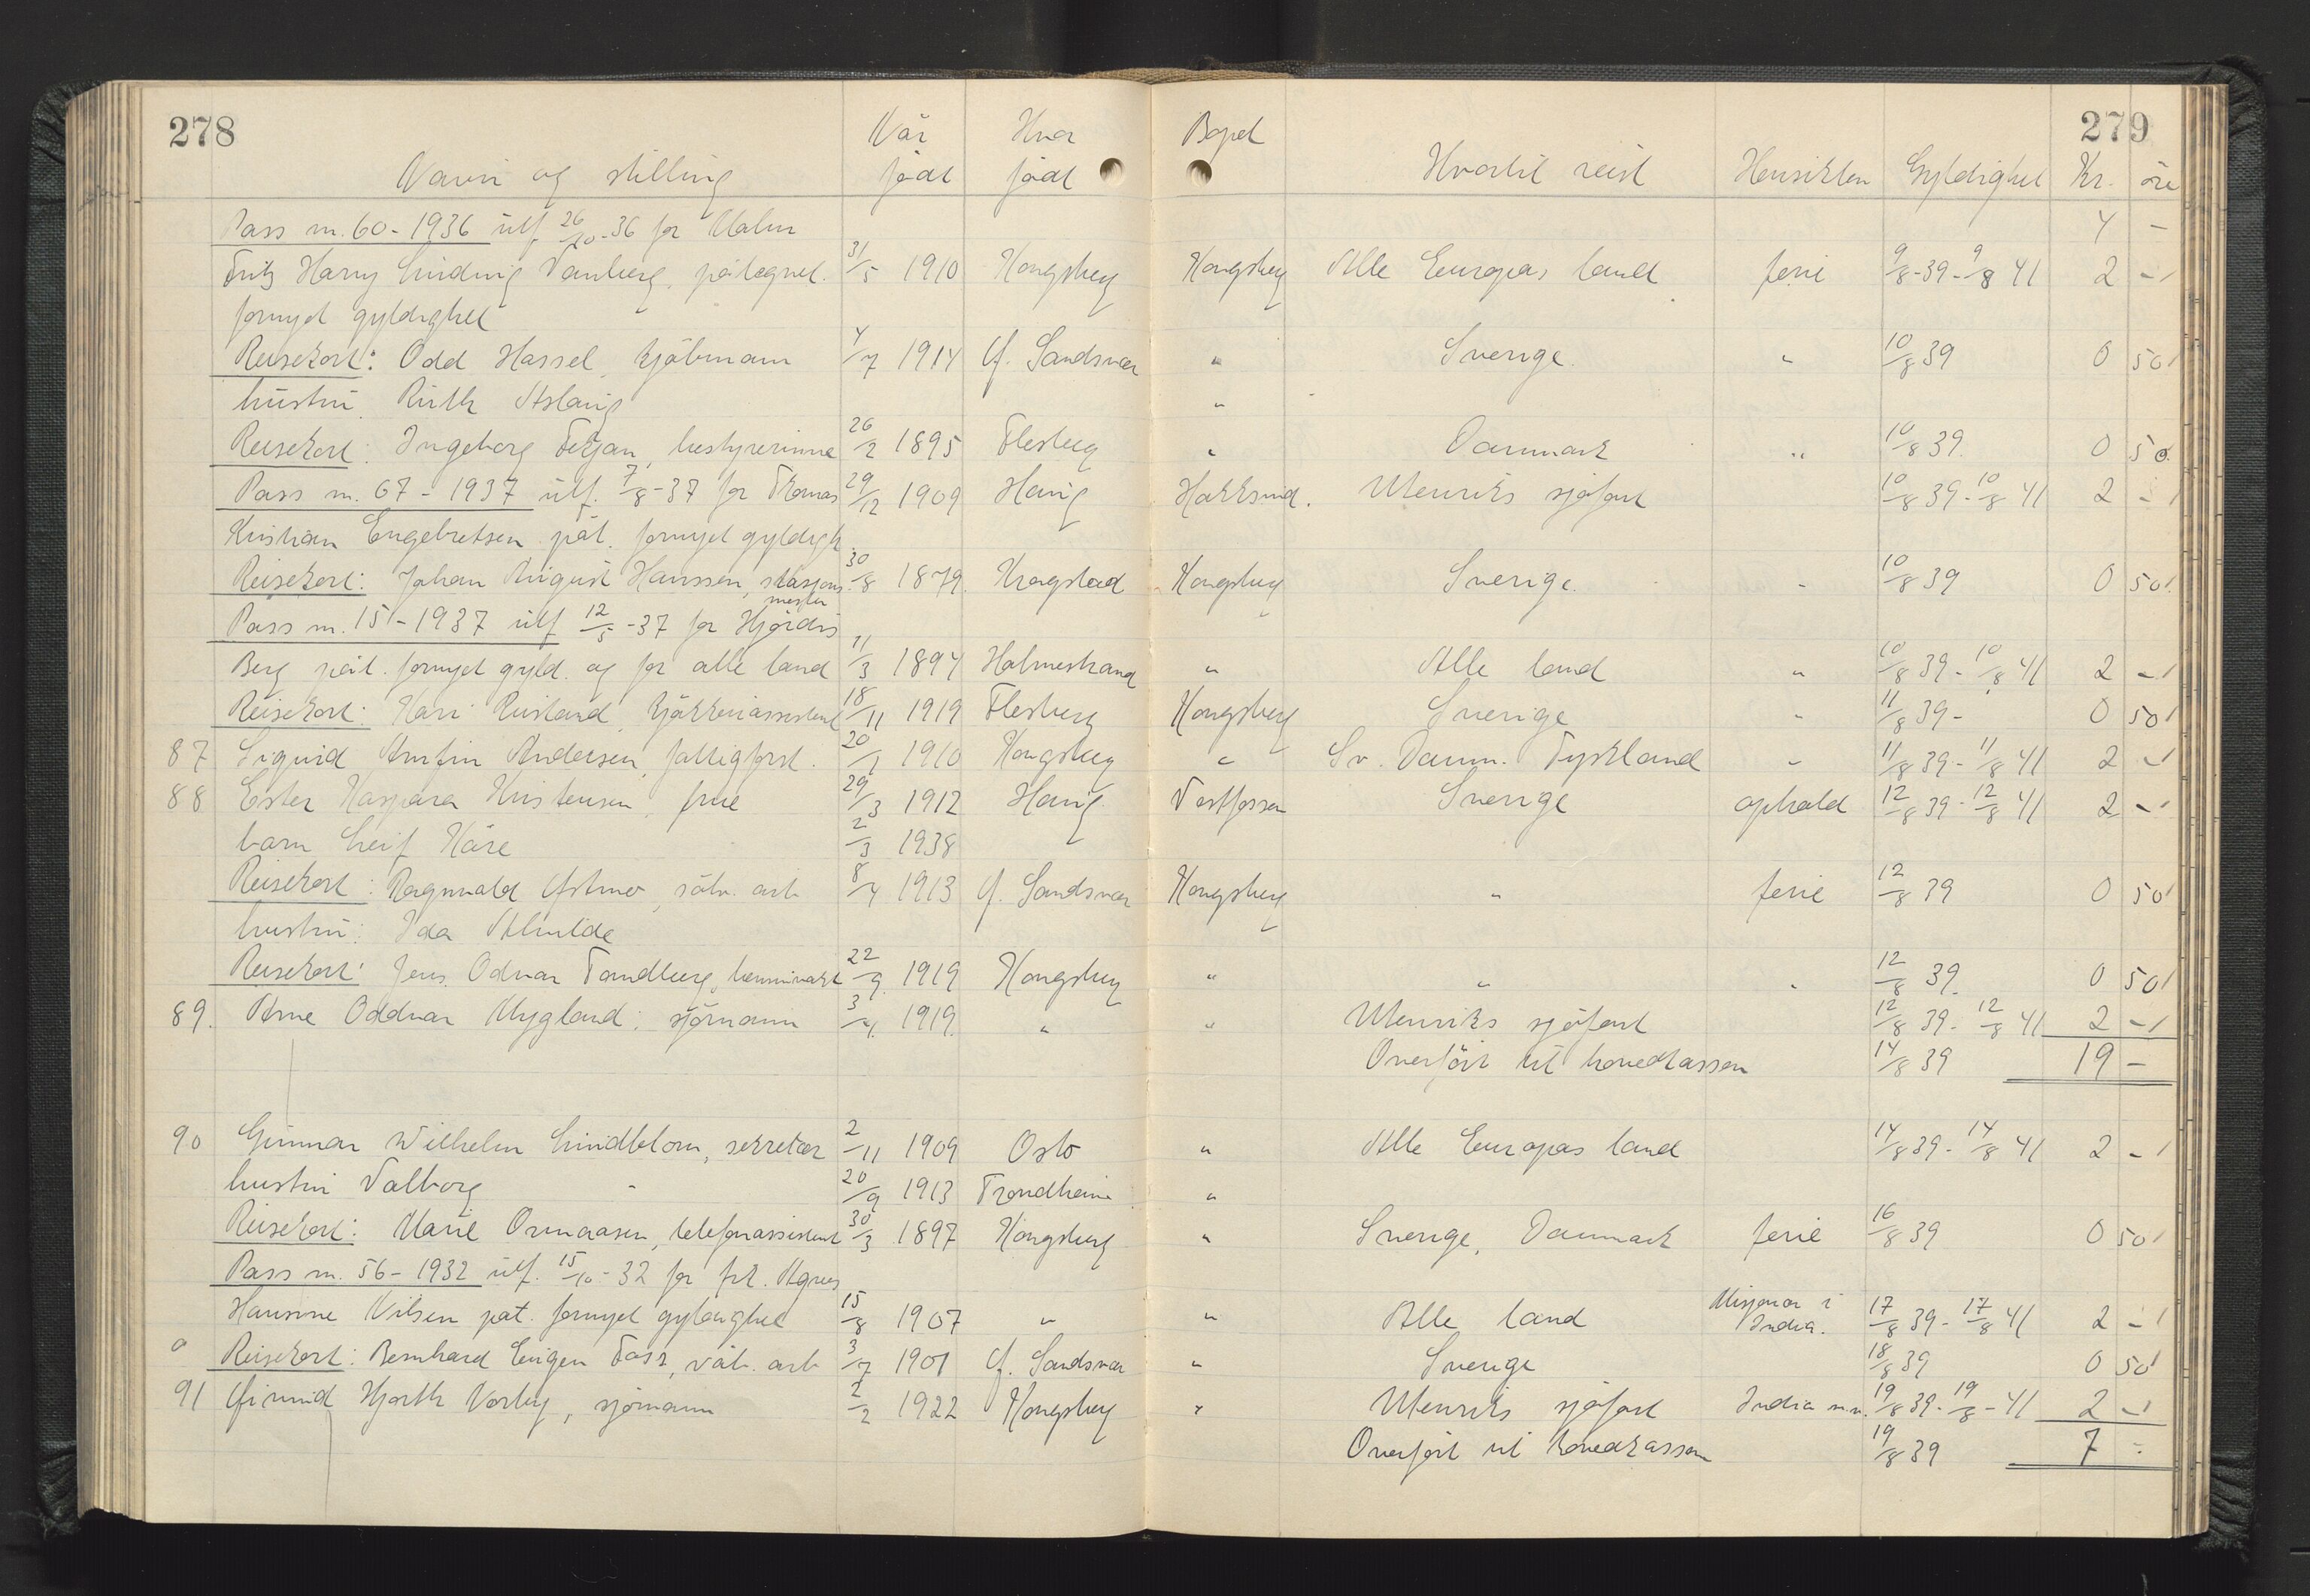 278 279
Når Hvor Bopel
Navn og stilling født født Hvortil reist Hensikten Gyldighet Kr. øre
Pass nr. 60 - 1936 utf. 26/10-36 for Malm 4 -
Fritz Harry Ludvig Vanberg, påtegnet. 31/5 1910 Kongsberg Kongsberg Alle Europas land ferie 9/8-39-9/8 41 2 -
fornyet gyldighet
Reisekort: Odd Hassel, kjøbmann 4/7 1914 Ø. Sandsvær " Sverige " 10/8 39 0 50
hustru Ruth Aslaug "
Reisekort: Ingeborg Fekjan, bestyrerinne 26/2 1895 Flesberg " Danmark " 10/8 39. 0 50
Pass nr. 67 - 1937 utf. 7/8-37 for Thomas 29/12 1909 Haug Hokksund. Utenriks sjøfart 10/8 39-10/8 41 2 -
Kristian Engebretsen påt. fornyet gyldigh.
Reisekort: Johan August Hanssen, stasjons- 30/8 1879 Kragstad Kongsberg Sverige. " 10/8 39 0 50
mester
Pass nr. 15 - 1937 utf 12/5-37 for Hjørdis
Berg påt. fornyet gyld. og for alle land 11/3 1894 Holmestrand " Alle land " 10/8 39-10/8 41 2 -
Reisekort: Kari Rustand, kjøkkenassistent 18/11 1919 Flesberg Kongsberg Sverige " 11/8 39- 0 50
87 Sigurd Arnfin Andersen, fattigforst. 20/1 1910 Kongsberg " Sv. Danm. Tyskland " 11/8 39-11/8 41 2 -
88 Ester Kaspara Kristensen, frue 29/3 1912 Haug Vestfossen Sverige ophold 12/8 39-12/8 41 2 -
barn Leif Kåre 23/3 1938
Reisekort: Ragnvald, sølv. arb 8/4 1913 Ø. Sandsvær Kongsberg " ferie 12/8 39 0 50
hustru: Ida Alvilde
Reisekort: Jens Odvar Tandberg, 22/9 1919 Kongsberg " " " 12/8 39 0 50
89. Arne Oddvar Mygland, sjømann 3/4. 1919. " " Utenriks sjøfart 12/8 39-12/8 41 2 -
Overført til hovedkassen 14/8 39 19 -
90 Gunnar Wilhelm Lindblom, sekretær 2/11 1909 Oslo " Alle Europas land 14/8 39-14/8 41 2 -
hustru Valborg " 20/9 1913 Trondheim "
Reisekort: Marie Ormaasen, telefonassistent 30/3 1897 Kongsberg " Sverige, Danmark ferie 16/8 39 0 50
Pass nr. 56 - 1932 utf. 15/10-32 for frk. Agnes
Hansine Nilsen påt. fornyet gyldighet 15/8 1907 " " Alle land Misjonær i India. 17/8 39-17/8 41 2 -
Reisekort: Bernhard Eugen Foss, våb. arb 3/7 1901 Ø. Sandsvær " Sverige 18/8 39 0 50
91 Øivind Hjorth Vorby, sjømann 2/2 1922 Kongsberg " Utenriks sjøfart India m.m. 19/8 39-19/8-41 2 -
Overført til hovedkassen 19/8 39 7 -